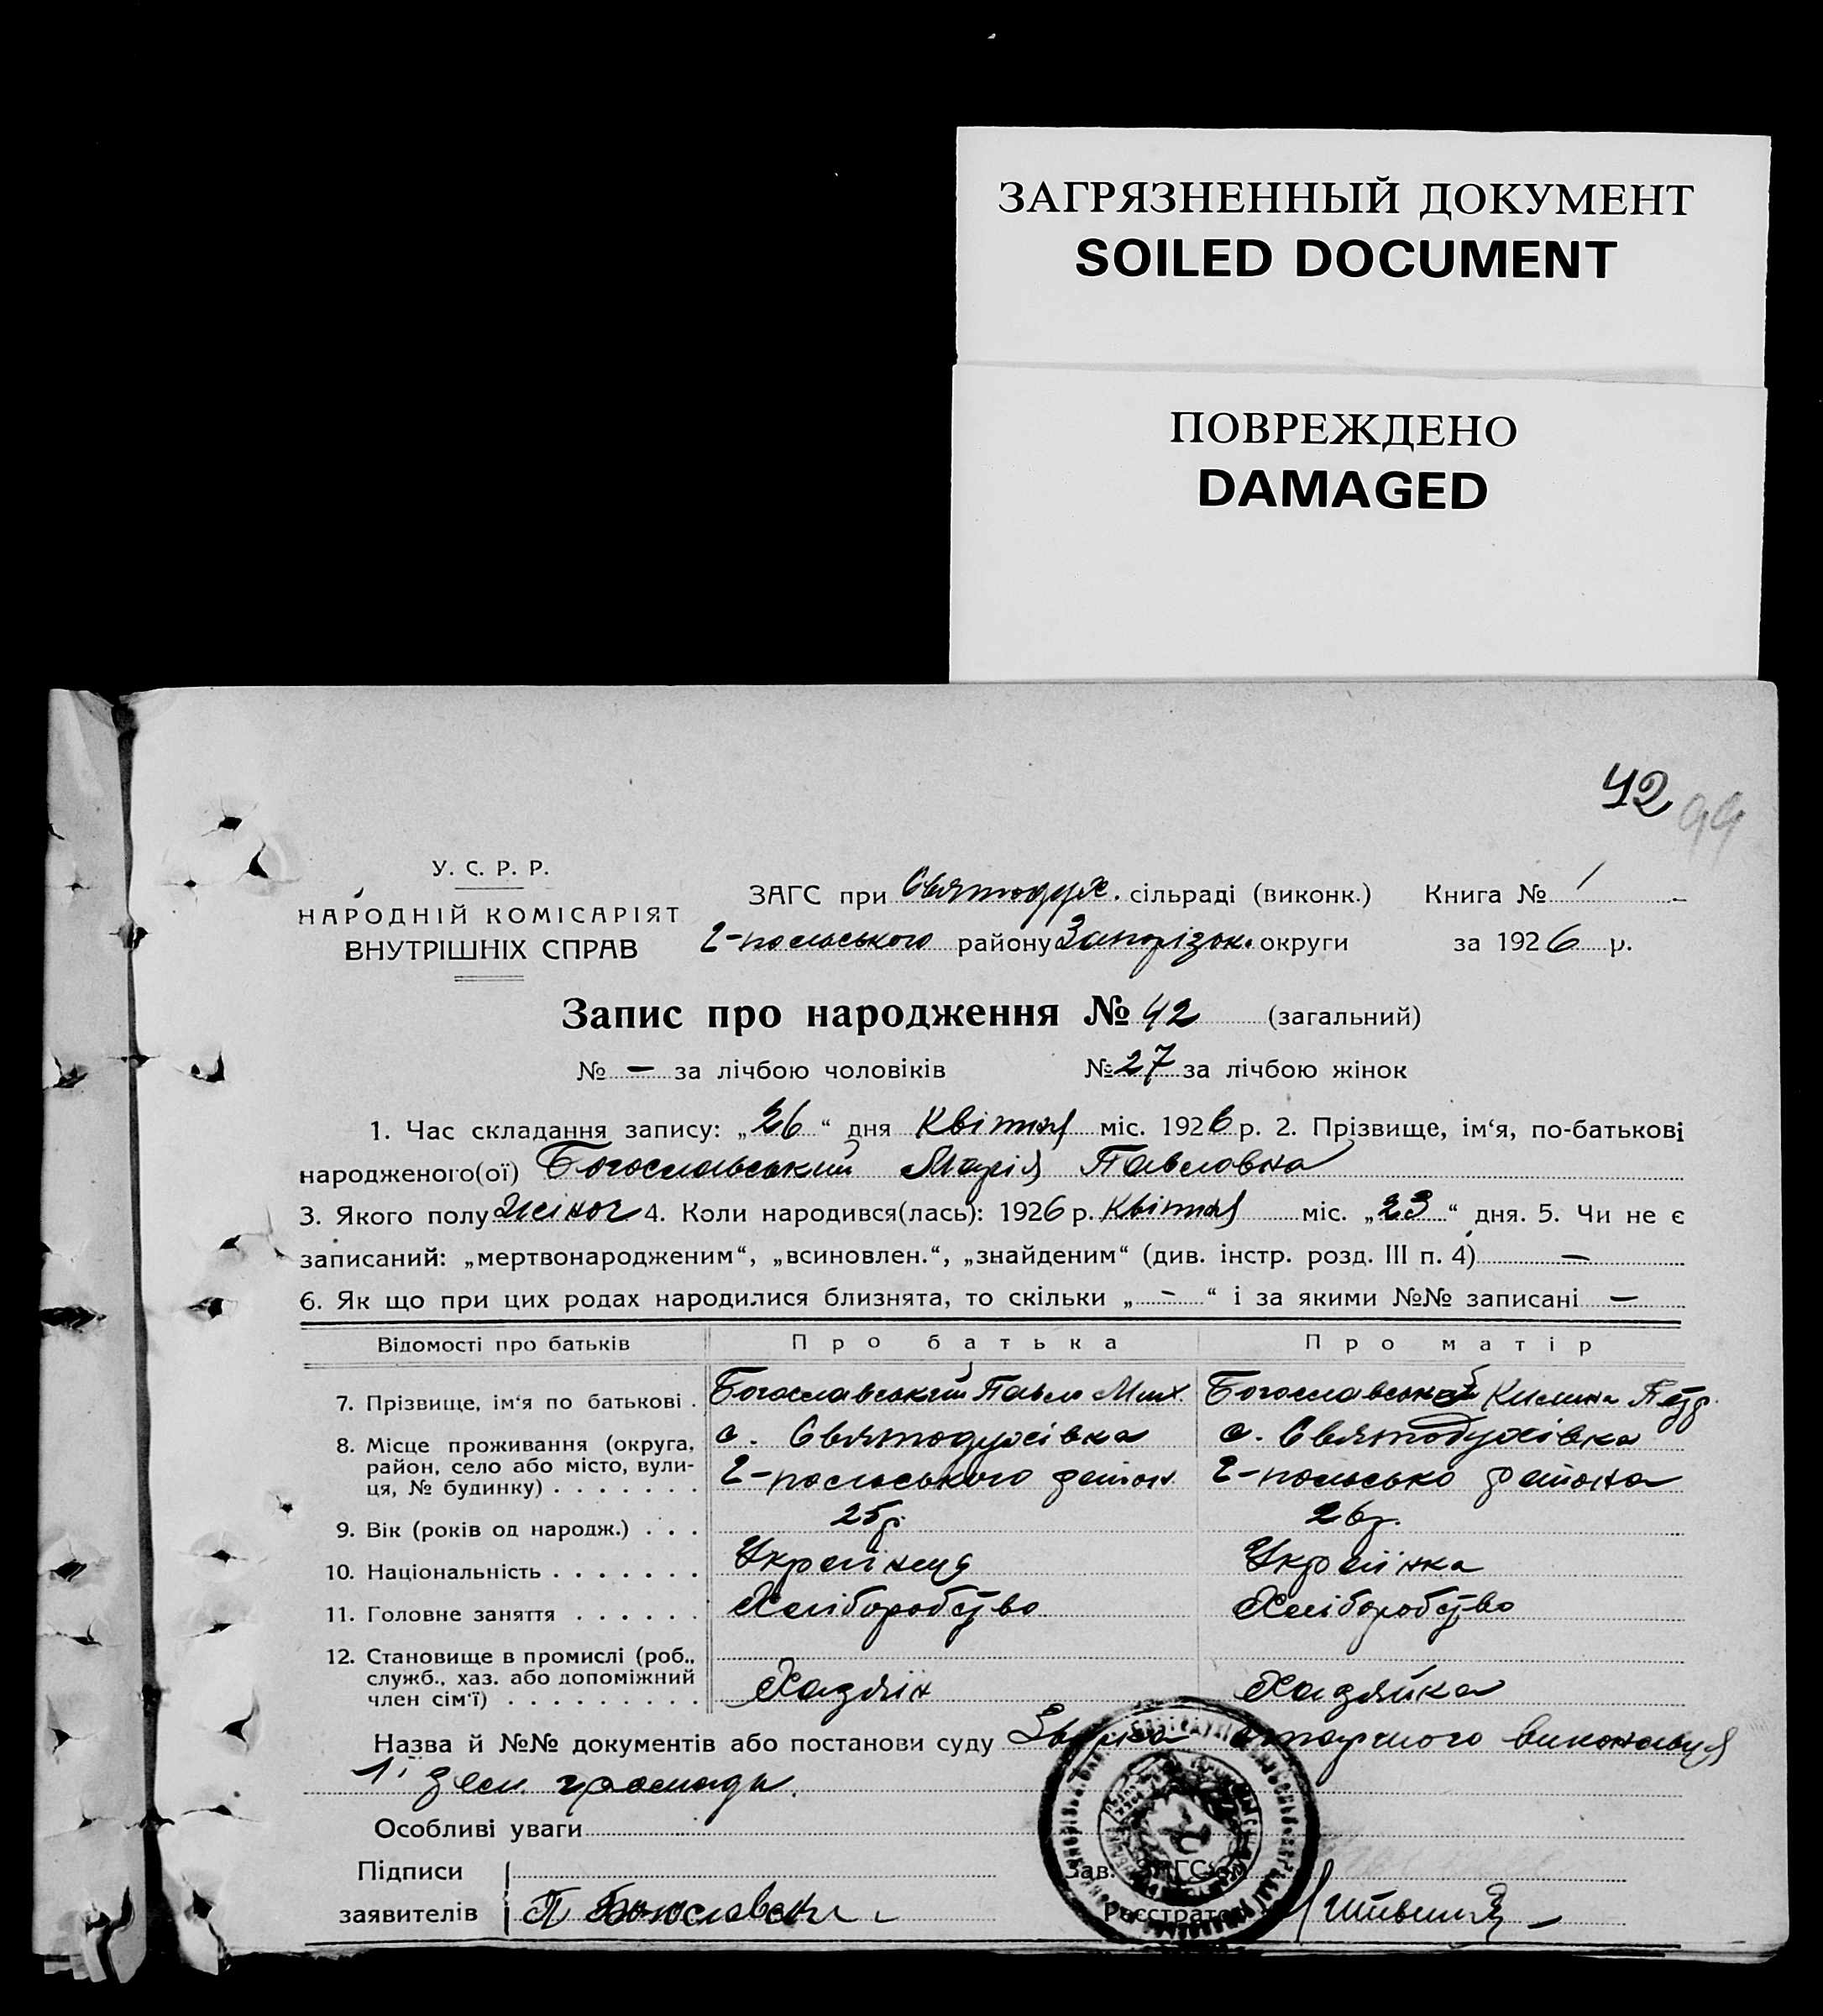 ЗАГРЯЗНЕННЫЙ ДОКУМЕНТ
SOILED DOCUMENT
ПОВРЕЖДЕНО
DAMAGED
42 99
У. С. Р. Р.
НАРОДНІЙ КОМІСАРІЯТ
ВНУТРІШНІХ СПРАВ
ЗАГС при Святодух. сільраді (виконк.) Книга № 1
2-польського району Запорізьк. округи за 1926 р.
Запис про народження № 42 (загальний)
№ — за лічбою чоловіків № 27 за лічбою жінок
1. Час складання запису: „26“ дня Квітня міс. 1926 р. 2. Прізвище, ім‘я, по-батькові
народженого(ої) Богославський Марія Павловна
3. Якого полу Жіноч 4. Коли народився(лась): 1926 р. Квітня міс. „23“ дня. 5. Чи не є
записаний: „мертвонародженим“, „всиновлен.“, „знайденим“ (див. інстр. розд. III п. 4) —
6. Як що при цих родах народилися близнята, то скільки „ - “ і за якими №№ записані —
Відомості про батьків Про батька Про матір
7. Прізвище, ім‘я по батькові . Богославський Павло Мих. Богославська Килина Петр.
8. Місце проживання (округа, с. Святодухівка с. Святодухівка
район, село або місто, вули- 2-польського район. 2-польсько района
ця, № будинку) . . . . . . .
9. Вік (років од народж.) . . . 25 р. 26 р.
10. Національність . . . . . . . Українця Українка
11. Головне заняття . . . . . . Хліборобство Хліборобство
12. Становище в промислі (роб.,
служб., хаз. або допоміжний Хазяїн Хазяйка
член сім‘ї) . . . . . . . . .
Назва й №№ документів або постанови суду виконавця
1ї громади.
Особливі уваги
Підписи Зав. ЗАГС‘ом
заявителів П Богославски Реєстратор